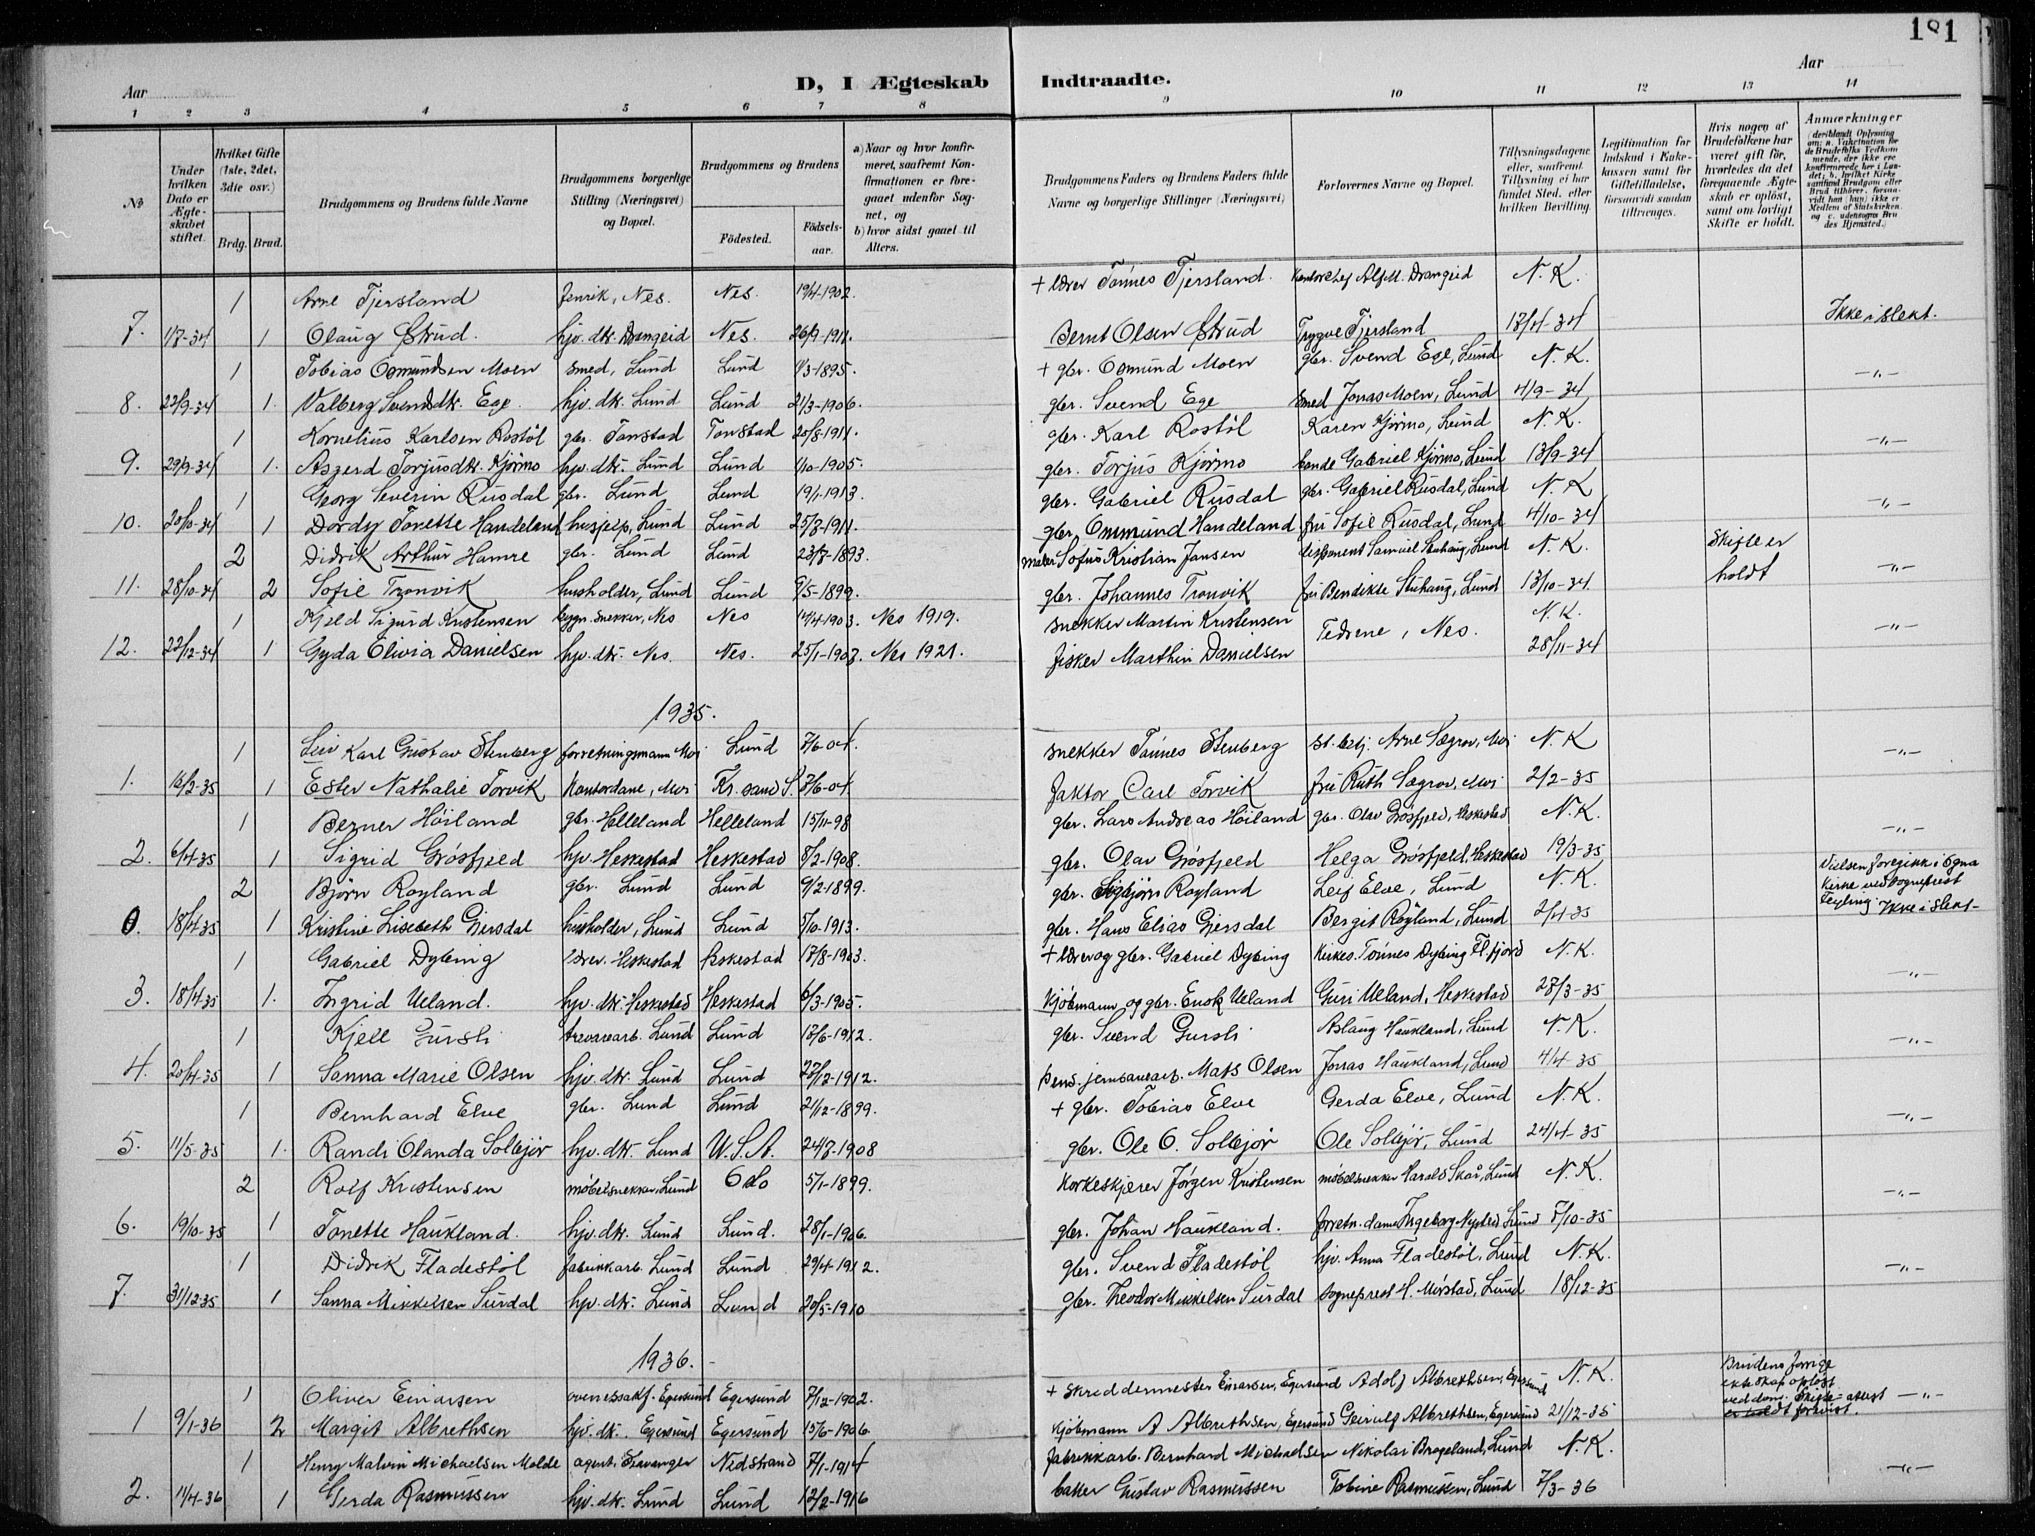 181
Aar
D, I Ægteskab Indtraadte.
Aar
1 2 3 4 5 6 7 8 9 10 11 12 13 14
№
Under hvilken Dato er Ægteskabet stiftet.
Hvilket Gifte (1ste, 2det, 3die osv.)
Brdg. Brud.
Brudgommens og Brudens fulde Navne
Brudgommens borgerlige Stilling (Næringsvei) og Bopæl.
Brudgommens og Brudens
Födested. Födsels-aar.
a) Naar og hvor konfirmeret, saafremt Konfirmationen er foregaaet udenfor Sognet, og
b) hvor sidst gaaet til Alters.
Brudgommens Faders og Brudens Faders fulde Navne og borgerlige Stillinger (Næringsvei)
Forlovernes Navne og Bopæl.
Tillysningsdagene eller, saafremt Tillysning ei har fundet Sted, efter hvilken Bevilling.
Legitimation for Indskud i Enkekassen samt for Giftetilladelse, forsaavidt saadan tiltrænges.
Hvis nogen af Brudefolkene har været gift för, hvorledes da det foregaaende Ægteskab er oplöst, samt om lovligt Skifte er holdt.
Anmærkninger
1 Arne Tjersland Fenrik, Nes. Nes. 19/4-1902. + lærer Tønnes Tjersland. Kontorchef Alf M. Drangeid N. K.
7. 1/7-34 1 Olaug Østrud. hjv. dtr. Drangeid Nes. 26/9-1911. Bernt Olsen Østrud Trygve Tjersland 13/4-34 Ikke i slekt.
1 Tobias Osmundsen Moen smed, Lund Lund 1/3-1895. + gbr. Osmund Moen gbr. Svend Ege, Lund N. K.
8. 22/9-34 1. Valberg Svendsdtr. Ege. hjv. dtr. Lund Lund 21/3-1906. gbr. Svend Ege smed Jonas Moen, Lund 4/9-34 -"-
1 Kornelius Karlsen Rostöl gbr. Tonstad Tonstad 20/8-1911. gbr. Karl Rostöl Karen Kjörmo, Lund N. K.
9. 29/9-34 1. Aszerd Torjusdtr. Kjörmo hjv. dtr. Lund Lund 1/10-1905. gbr. Torjus Kjörmo bonde Gabriel Kjörmo, Lund 13/9-34 -"-
1 Georg Severin Rusdal gbr. Lund Lund 19/1-1913. gbr. Gabriel Rusdal gbr. Gabriel Rusdal, Lund N. K
10. 20/10-34 1 Dordy Tonette Handeland husjelp, Lund Lund 25/8-1911. gbr. Ommund Handeland fru Sofie Rusdal, Lund 4/10-34 -"-
2 Didrik Arthur Hamre gbr. Lund Lund 23/8-1893. maler Sofus Kristian Jansen disponent Samuel Stuhaug, Lund N. K. Skifte er holdt
11. 28/10-34 2 Sofie Tronvik husholder, Lund Lund 9/5-1899. gbr. Johannes Tronvik fru Bendikte Stuhaug, Lund 13/10-34 -"-
1 Kjeld Sigurd Kristensen bygn. snekker, Nes Nes 14/4-1903. Nes 1919. snekker Martin Kristensen Fedrene, Nes. N. K.
12. 22/12-34 1 Gyda Olivia Danielsen hjv. dtr. Nes. Nes. 25/1-1907. Nes 1921. fisker Marthin Danielsen 28/11-34 -"-
1935.
1 Leiv Karl Gustav Stenberg forretningsmann Moi Lund 7/6-04. snekker Tönnes Stenberg st. betj. Arne Sægrov, Moi N. K
1. 16/2-35 1 Ester Nathalie Torvik Kontordame, Moi Kr. sand S. 7/6-04. faktor Carl Torvik fru Ruth Sægrov, Moi 2/2-35 -"-
1 Berner Höiland gbr. Helleland Helleland 15/11-98 gbr. Lars Andreas Höiland gbr. Olav Grösfjeld, Heskestad N. K.
2. 6/4-35 1 Sigrid Grösfjeld hjv. Heskestad Heskestad 8/2-1908. gbr. Olav Grösfjeld Helga Grösfjeld, Heskestad 19/3-35 -"-
2 Björn Royland gbr. Lund Lund 9/2-1899. gbr. Sigbjörn Royland Leif Elve, Lund N. K. Vielsen foregikk i Ogna kirke ved sogneprest Teyling. Ikke i slekt-
0. 18/4-35 1 Kristine Lisebeth Giersdal husholder, Lund Lund 5/10-1913. gbr. Hans Elias Giersdal Bergit Röyland, Lund 2/4-35
1 Gabriel Dybing lærer. Heskestad Heskestad 17/8-1903. + lærer og gbr. Gabriel Dybing kirkes. Tönnes Dybing Fl.fjord N. K.
3. 18/4-35 1. Ingrid Ueland. hjv. dtr. Heskestad Heskestad 6/3-1905. kjöbmann og gbr. Enok Ueland Guri Ueland, Heskestad 28/3-35 -"-
1 Kjell Gursli trevarearb. Lund Lund 18/6-1912. gbr. Svend Gursli Aslaug Haukland, Lund N. K.
4. 20/4-35 1 Sanna Marie Olsen hjv. dtr. Lund Lund 27/12-1912. pens. jernbanearb. Mats Olsen Jonas Haukland, Lund 4/4-35 -"-
1 Bernhard Elve gbr. Lund Lund 21/12-1899. + gbr. Tobias Elve Gerda Elve, Lund N. K.
5. 11/5-35 1. Randi Olanda Solbjör hjv. dtr. Lund U. S. A. 24/8-1908 gbr. Ole O. Solbjör Ole Solbjör, Lund 24/4-35 -"-
2 Rolf Kristensen möbelsnekker, Lund Oslo 5/1-1899. Korkeskjærer Jörgen Kristensen möbelsnekker Harald Skår, Lund N. K.
6. 19/10-35 1 Tonette Haukland. hjv. dtr. Lund Lund. 28/1-1906. gbr. Johan Haukland. forretn. dame Ingeborg Nysted Lund 5/10-35 -"-
1 Didrik Fladestöl fabrikkarb. Lund Lund 29/4-1912. gbr. Svend Fladestöl hjv. Anna Fladestöl, Lund N. K.
7. 31/12-35 1 Sanna Mikkelsen Surdal hjv. dtr. Lund Lund 20/5-1910 gbr. Theodor Mikkelsen Surdal sogneprest H. Mörstad, Lund 18/12-35 -"-
1936.-
1 Oliver Einarsen Egersund Egersund 7/12-1902. + Skreddermester Einarsen, Egersund Adolf Albrethsen, Egersund N. K. Brudens forrige ekteskap oplöst ved dom. Skifte avlyst er holdt forvist.
1 9/1-36 2 Margit Albrethsen hjv. dtr. Egersund Egersund 15/6-1906 Kjöbmann A Albrethsen, Egersund Geirulf Albrethsen, Egersund 21/12-35 -"-
1 Henry Malvin Michaelsen Molde agent, Stavanger Nedstrand 7/1-1914 fabrikkarb. Bernhard Michaelsen Nikolai Brogeland, Lund N. K.
2. 11/4-36 1 Gerda Rasmussen hjv. dtr. Lund Lund 12/2-1916 baker Gustav Rasmussen Tobine Rasmussen, Lund 7/3-36 -"-